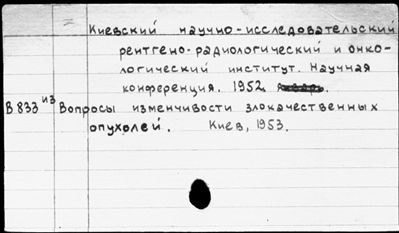 Киевский научно-исследовательский
рентгено-радиологический и онко-
логический институт. Научная
конференция. 1952.
В.833 из Вопросы изменчивости злокачественных
опухолей. Киев, 1953.